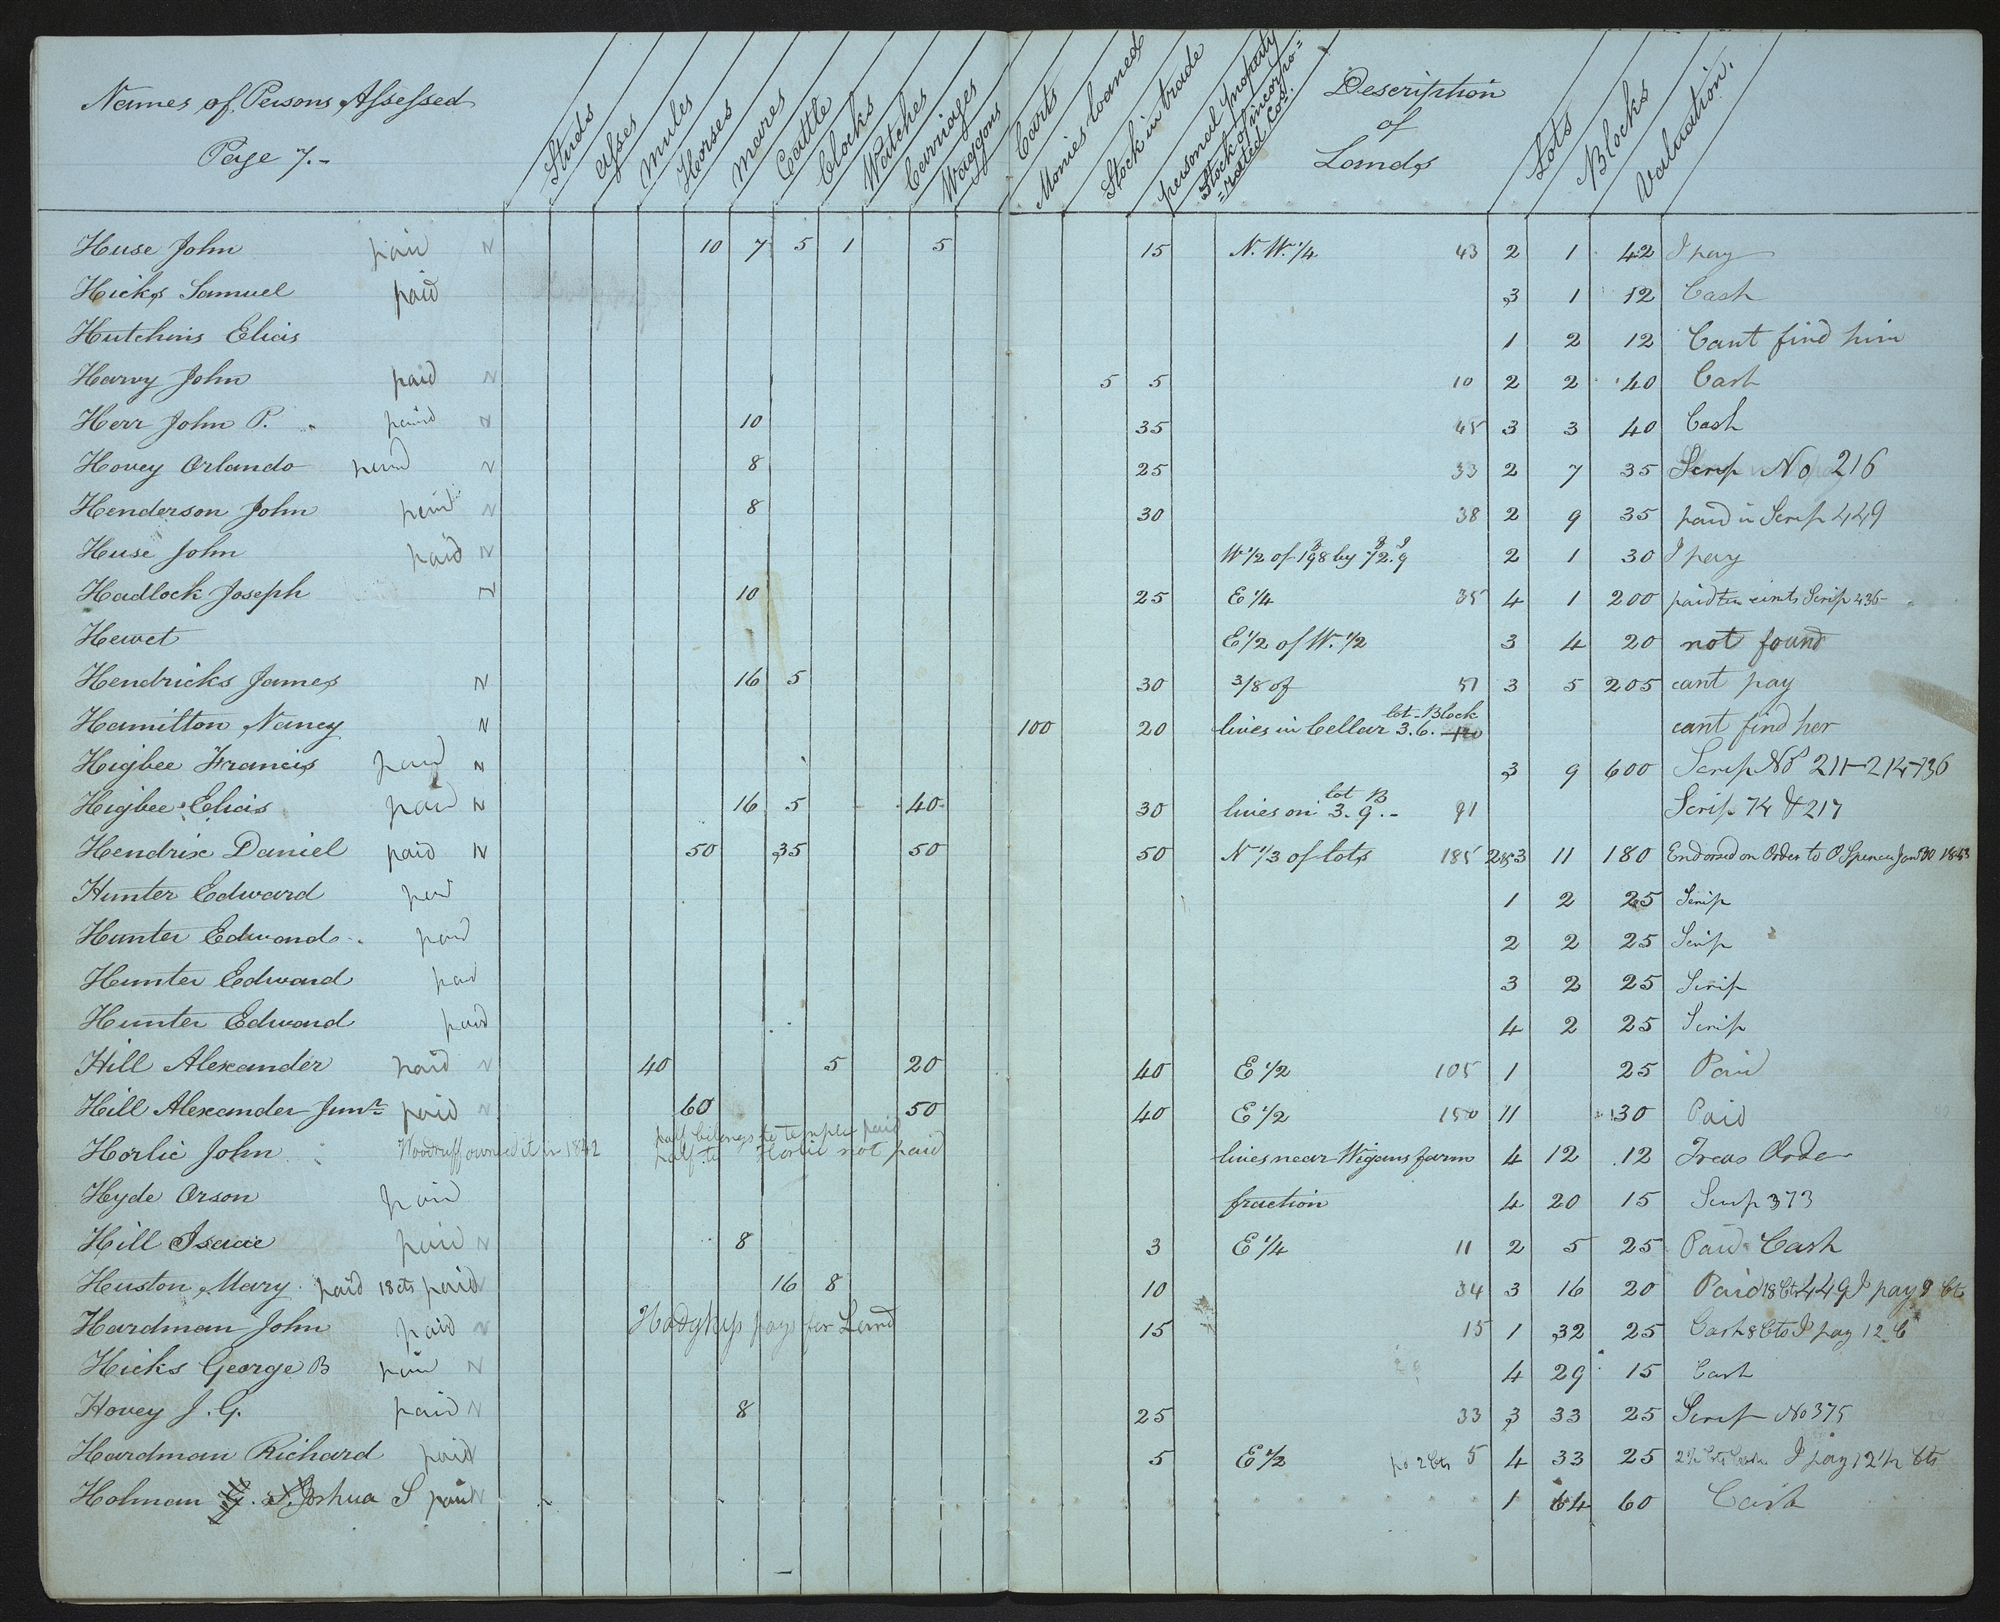 Names of Persons Assessed
Page 7.-
Studs Asses Mules Horses Mares Cattle Clocks Watches Carriages Waggons Carts Monies loaned Stock in trade personal property Stock of incorpo= =rated Cos. Description of Lands Lots Blocks Valuation.
Huse John paid N 10 7 5 1 5 15 N. W. 1/4 43 2 1 42 I pay
Hicks Samuel paid 3 1 12 Cash
Hutchins Elias 1 2 12 Cant find him
Harvy John paid N 5 5 10 2 2 40 Cash
Herr John P. paid N 10 35 45 3 3 40 Cash
Hovey Orlando paid N 8 25 33 2 7 35 Scrip No 216
Henderson John paid N 8 30 38 2 9 35 paid in Scrip 449
Huse John paid N W 1/2 of 198 by 72.9 2 1 30 I pay
Hadlock Joseph N 10 25 E 1/4 35 4 1 200 paid ten cents Scrip 436
Hewet E 1/2 of W. 1/2 3 4 20 not found
Hendricks James N 16 5 30 3/8 of 51 3 5 205 cant pay
Hamilton Nancy N 100 20 lives in Cellar lot-Block 3.6. 120 cant find her
Higbee Francis paid N 3 9 600 Scrip No 211-214-136
Higbee Elias paid N 16 5 40 30 lives on lot B 3.9.- 91 Scrip 74 & 217
Hendrix Daniel paid N 50 35 50 50 N 1/3 of lots 185 2&3 11 180 Endorsed on Order to O Spencer Jan 30 1843
Hunter Edward paid 1 2 25 Scrip
Hunter Edward paid 2 2 25 Scrip
Hunter Edward paid 3 2 25 Scrip
Hunter Edward paid 4 2 25 Scrip
Hill Alexander paid N 40 5 20 40 E 1/2 105 1 25 Paid
Hill Alexander Junr paid N 60 50 40 E 1/2 150 11 30 Paid
Horlic John Woodruff owned it in 1842 half belongs to temple paid half to Horlic not paid lives near Wigans farm 4 12 12 Treas Order
Hyde Orson paid fraction 4 20 15 Scrip 373
Hill Isaac paid N 8 3 E 1/4 11 2 5 25 Paid Cash
Huston Mary paid 18 cts paid 16 8 10 34 3 16 20 Paid 18 Cts 449 I pay 9 Cts
Hardman John paid N pays for Land 15 15 1 32 25 Cash 8 Cts I pay 12 C
Hicks George B paid N 29 4 29 15 Cash
Hovey J. G. paid N 8 25 33 3 33 25 Scrip No 375
Hardman Richard paid 5 E 1/2 pd 2 Cts 5 4 33 25 2 1/2 Cts Cash I pay 12 1/2 Cts
Holman Joshua S paid N 1 64 60 Cash